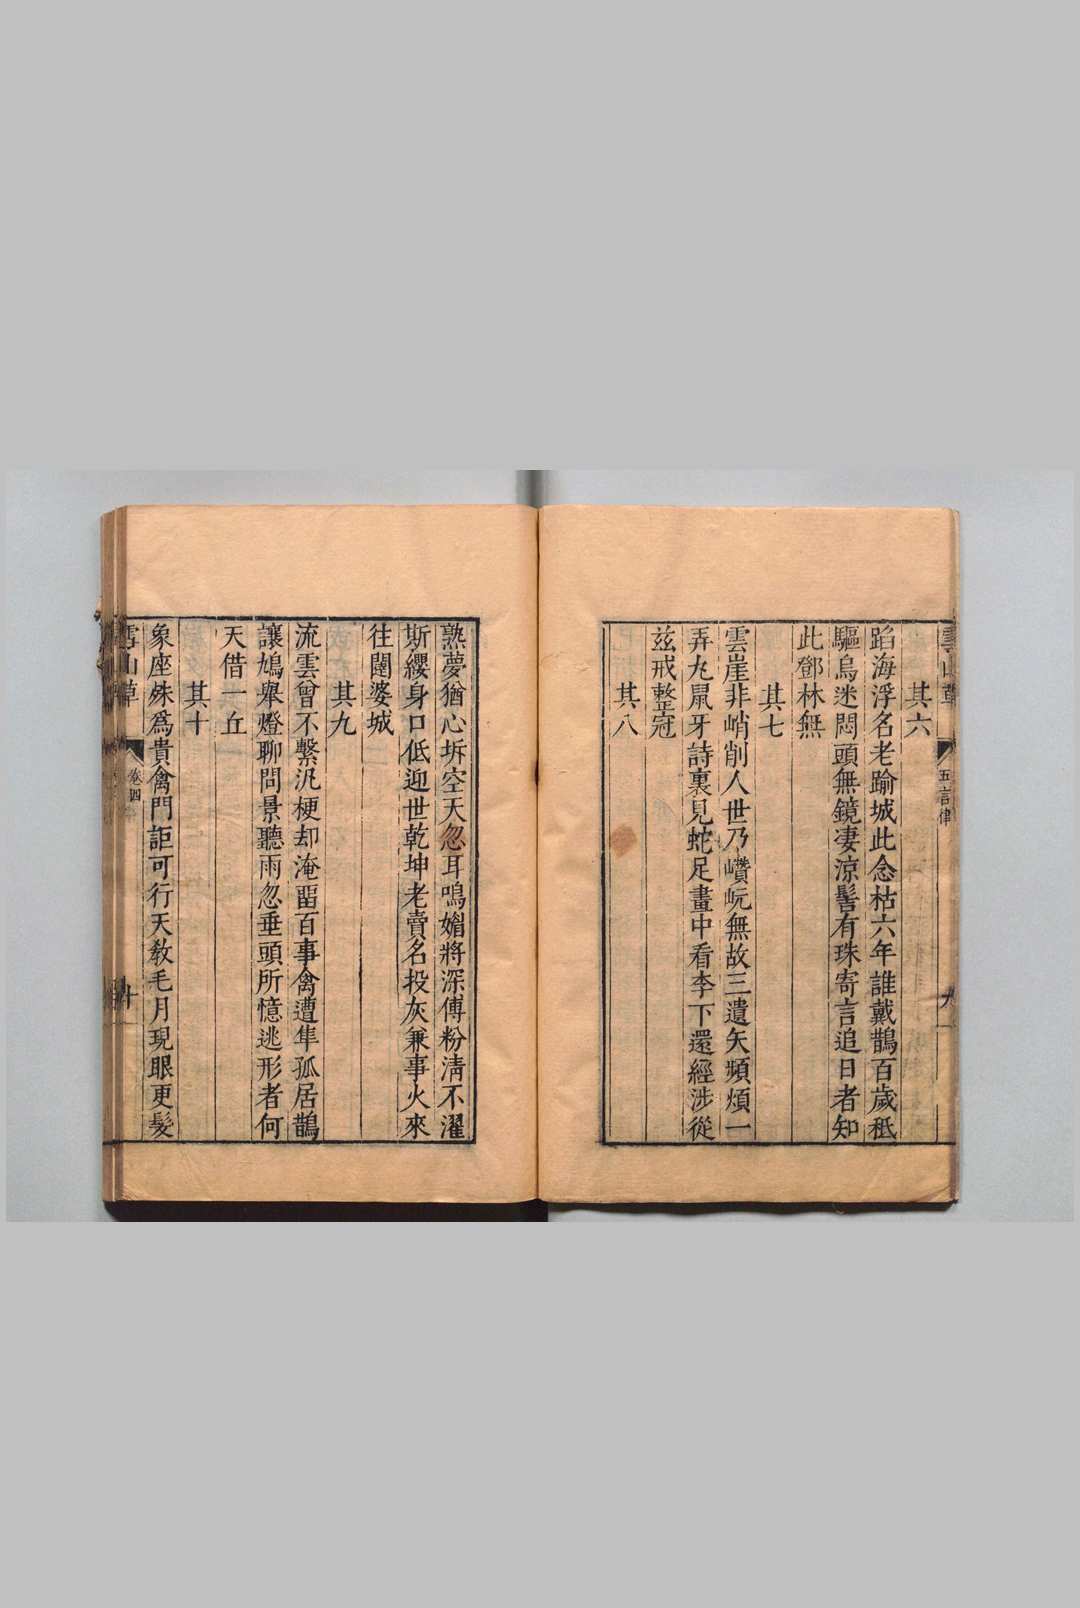 雲山草
五言律
九
其六
蹈海浮名老踰城此念枯六年誰戴鵲百歲秖
驅烏迷悶頭無鏡凄涼髻有珠寄言追日者知
此鄧林無
其七
雲崖非峭削人世乃巑岏無故三遺矢頻煩一
弄丸鼠牙詩裏見蛇足畫中看李下還經涉從
茲戒整冠
其八
熟夢猶心坼空天忽耳鳴媚將深傅粉淸不濯
斯纓身口低迎世乾坤老賣名投灰兼事火來
往闥婆城
其九
流雲曾不繫汎梗却淹畱百事禽遭隼孤居鵲
讓鳩舉燈聊問景聽雨忽垂頭所憶逃形者何
天借一丘
其十
象座殊爲貴禽門詎可行天敎毛月現眼更髮
雪山草
卷四
十